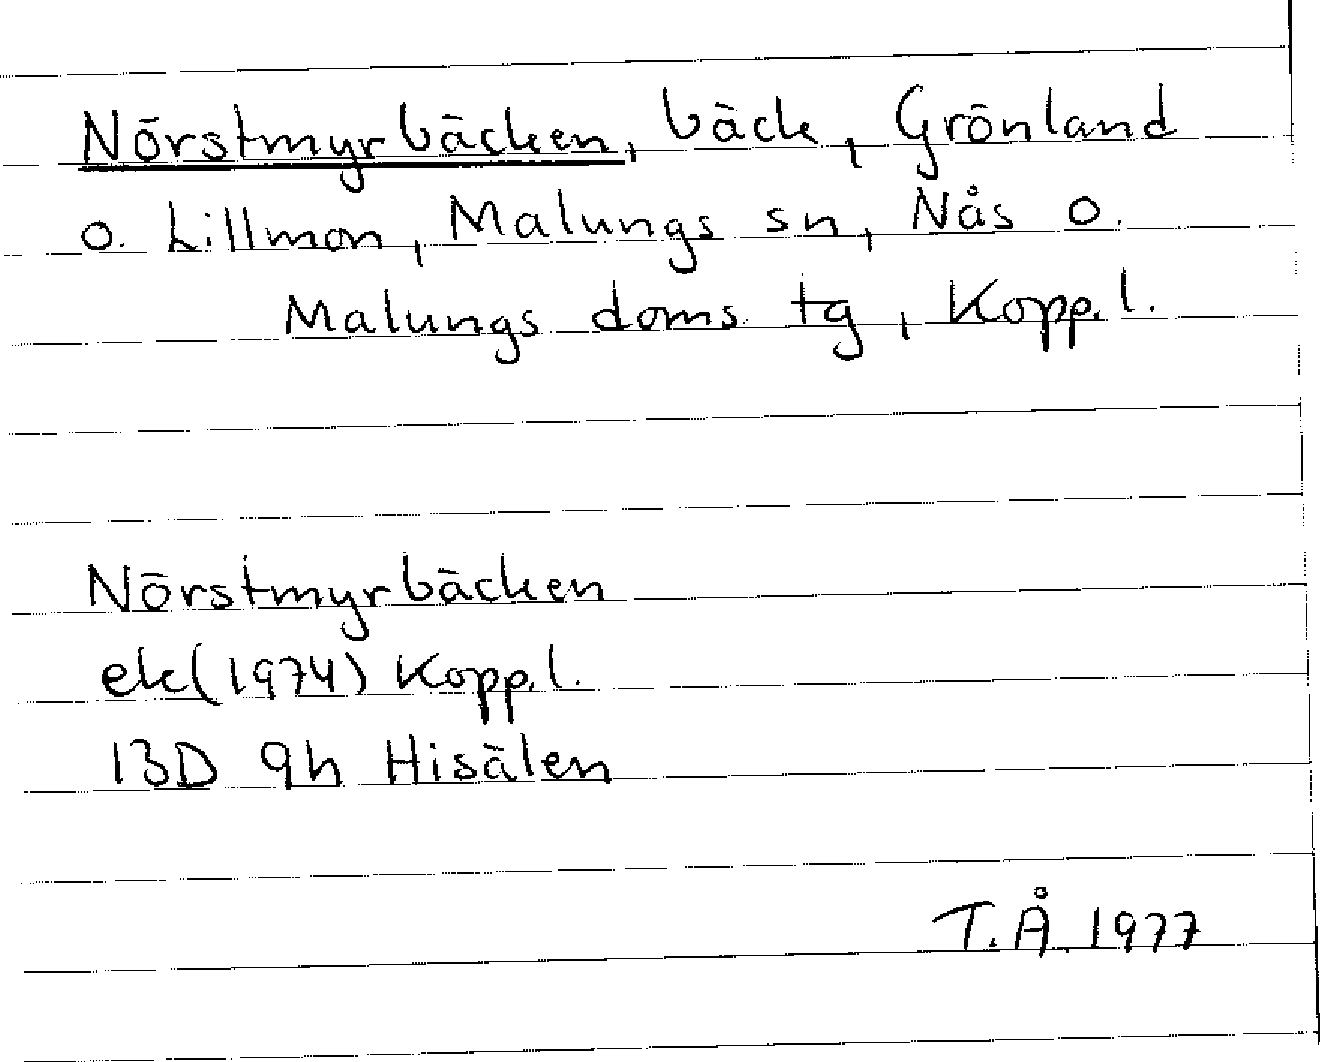 Nörstmyrbäcken, bäck, Grönland
o. Lillmon, Malungs sn, Nås o.
Malungs doms. tg, Kopp.l.
Nörstmyrbäcken
ek(1974) Kopp.l.
13D 9h Hisälen
T.Å. 1977